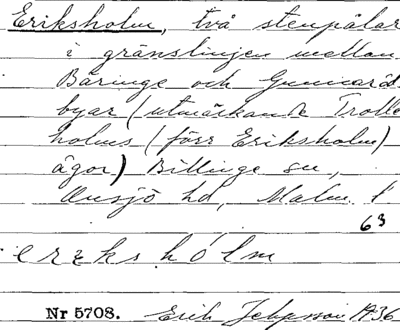 Eriksholm, två stenpålar
i gränslinjen mellan
Båringe och Gunnaröds
byar (utmärkande Trolle
holms (förr Eriksholm)
ägor) Billinge sn,
Onsjö hd, Malm. l
63
Nr 5708. Erik Jeppsson 1936